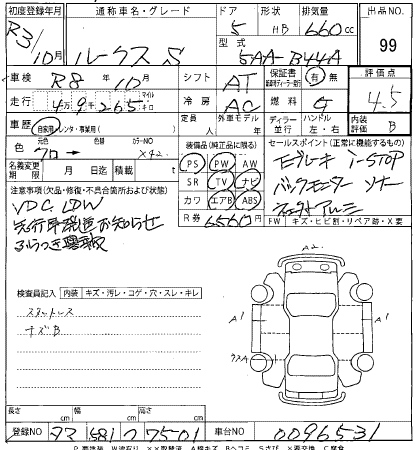 初度登録年月 通称車名・グレード ドア 形状 排気量 出品NO
R3/10月 ルークス S 5 HB 660cc 99
型式 5AA-B44A
車検 R8年10月 シフト AT 保証書 有 無 評価点
走行 4万9千265 マイル キロ 冷房 AC 燃料 G 4.5
車歴 自家用 レンタ・事業用( ) 定員 人 外車モデル 年 ディーラー 並行 ハンドル 左・右 内装 B
色 元色 クロ → 色 カラーNO X42 装備品(純正品に限る) セールスポイント(正常に機能するもの)
名義変更期限 月 日迄 積載 t PS PW AW
注意事項(欠品・修復・不具合箇所および状態) SR TV ナビ
カワ エアB ABS
R券 6560円
エマブレーキ i-STOP
バックモニター ソナー
純正アルミ
VDC LDW
先行車発進お知らせ
ふらつき警報
FW キズ・ヒビ割・リペア跡・X要
検査員記入 内装 キズ・汚レ・コゲ・穴・スレ・キレ
スタットレス
キズB
A2
A1 A1
長さ cm 幅 cm 高さ cm
登録NO タマ 581 つ 7501 車台NO 0096531